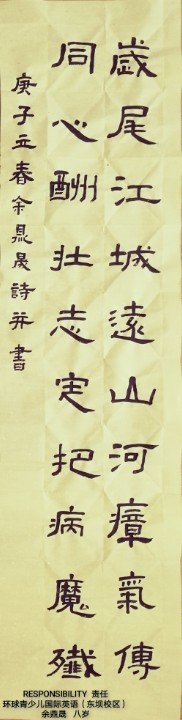 歲尾江城遠山河瘴氣傳
同心酬壯志定把病魔殲
庚子立春余鼎晟詩并書
RESPONSIBILITY 责任
环球青少儿国际英语（东坝校区）
余鼎晟 八岁